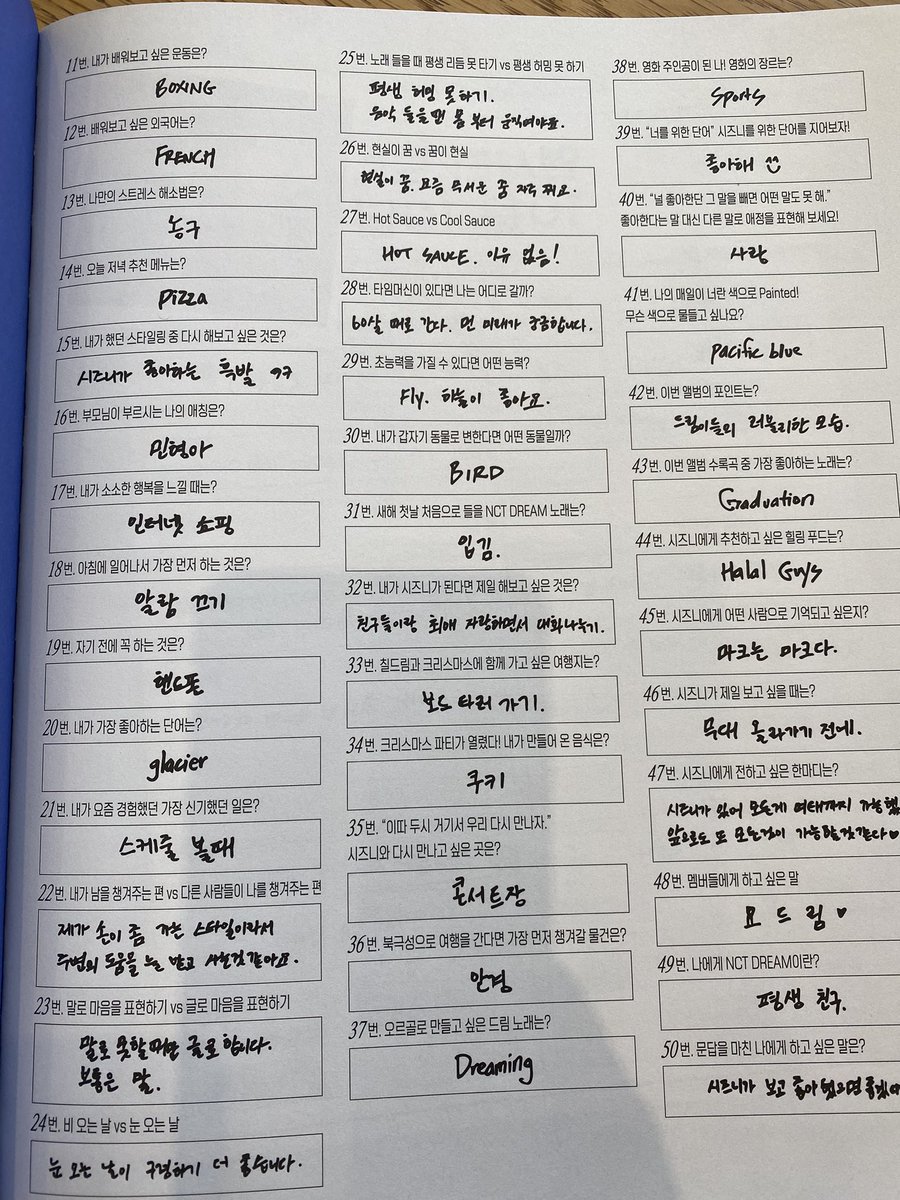 11번. 내가 배워보고 싶은 운동은?
BOXING
12번. 배워보고 싶은 외국어는?
FRENCH
13번. 나만의 스트레스 해소법은?
농구
14번. 오늘 저녁 추천 메뉴는?
pizza
15번. 내가 했던 스타일링 중 다시 해보고 싶은 것은?
시즈니가 좋아하는 흑발 ㅋㅋ
16번. 부모님이 부르시는 나의 애칭은?
민형아
17번. 내가 소소한 행복을 느낄 때는?
인터넷 쇼핑
18번. 아침에 일어나서 가장 먼저 하는 것은?
알람 끄기
19번. 자기 전에 꼭 하는 것은?
핸드폰
20번. 내가 가장 좋아하는 단어는?
glacier
21번. 내가 요즘 경험했던 가장 신기했던 일은?
스케줄 볼때
22번. 내가 남을 챙겨주는 편 vs 다른 사람들이 나를 챙겨주는 편
제가 손이 좀 가는 스타일이라서
주변의 도움을 늘 받고 사는것 같아요.
23번. 말로 마음을 표현하기 vs 글로 마음을 표현하기
말로 못할때만 글로 합니다.
보통은 말.
24번. 비 오는 날 vs 눈 오는 날
눈 오는 날이 구경하기 더 좋습니다.
25번. 노래 들을 때 평생 리듬 못 타기 vs 평생 허밍 못 하기
평생 허밍 못하기.
음악 들을땐 몸 부터 움직여야죠.
26번. 현실이 꿈 vs 꿈이 현실
현실이 꿈. 요즘 무서운 꿈 자주 꿔요.
27번. Hot Sauce vs Cool Sauce
HOT SAUCE. 이유 없음!
28번. 타임머신이 있다면 나는 어디로 갈까?
60살 때로 간다. 먼 미래가 궁금합니다.
29번. 초능력을 가질 수 있다면 어떤 능력?
Fly. 하늘이 좋아요.
30번. 내가 갑자기 동물로 변한다면 어떤 동물일까?
BIRD
31번. 새해 첫날 처음으로 들을 NCT DREAM 노래는?
입김.
32번. 내가 시즈니가 된다면 제일 해보고 싶은 것은?
친구들이랑 최애 자랑하면서 대화나누기.
33번. 칠드림과 크리스마스에 함께 가고 싶은 여행지는?
보드 타러 가기.
34번. 크리스마스 파티가 열렸다! 내가 만들어 온 음식은?
쿠키
35번. “이따 두시 거기서 우리 다시 만나자.”
시즈니와 다시 만나고 싶은 곳은?
콘서트장
36번. 북극성으로 여행을 간다면 가장 먼저 챙겨갈 물건은?
안경
37번. 오르골로 만들고 싶은 드림 노래는?
Dreaming
38번. 영화 주인공이 된 나! 영화의 장르는?
Sports
39번. “너를 위한 단어” 시즈니를 위한 단어를 지어보자!
좋아해
40번. “널 좋아한단 그 말을 빼면 어떤 말도 못 해.”
좋아한다는 말 대신 다른 말로 애정을 표현해 보세요!
사랑
41번. 나의 매일이 너란 색으로 Painted!
무슨 색으로 물들고 싶나요?
Pacific blue
42번. 이번 앨범의 포인트는?
드림이들의 러블리한 모습.
43번. 이번 앨범 수록곡 중 가장 좋아하는 노래는?
Graduation
44번. 시즈니에게 추천하고 싶은 힐링 푸드는?
Halal Guys
45번. 시즈니에게 어떤 사람으로 기억되고 싶은지?
마크는 마크다.
46번. 시즈니가 제일 보고 싶을 때는?
무대 올라가기 전에.
47번. 시즈니에게 전하고 싶은 한마디는?
시즈니가 있어 모든게 여태까지 가능했
앞으로도 또 모든것이 가능할것 같다♥
48번. 멤버들에게 하고 싶은 말
요 드림♥
49번. 나에게 NCT DREAM이란?
평생 친구.
50번. 문답을 마친 나에게 하고 싶은 말은?
시즈니가 보고 좋아했으면 좋겠